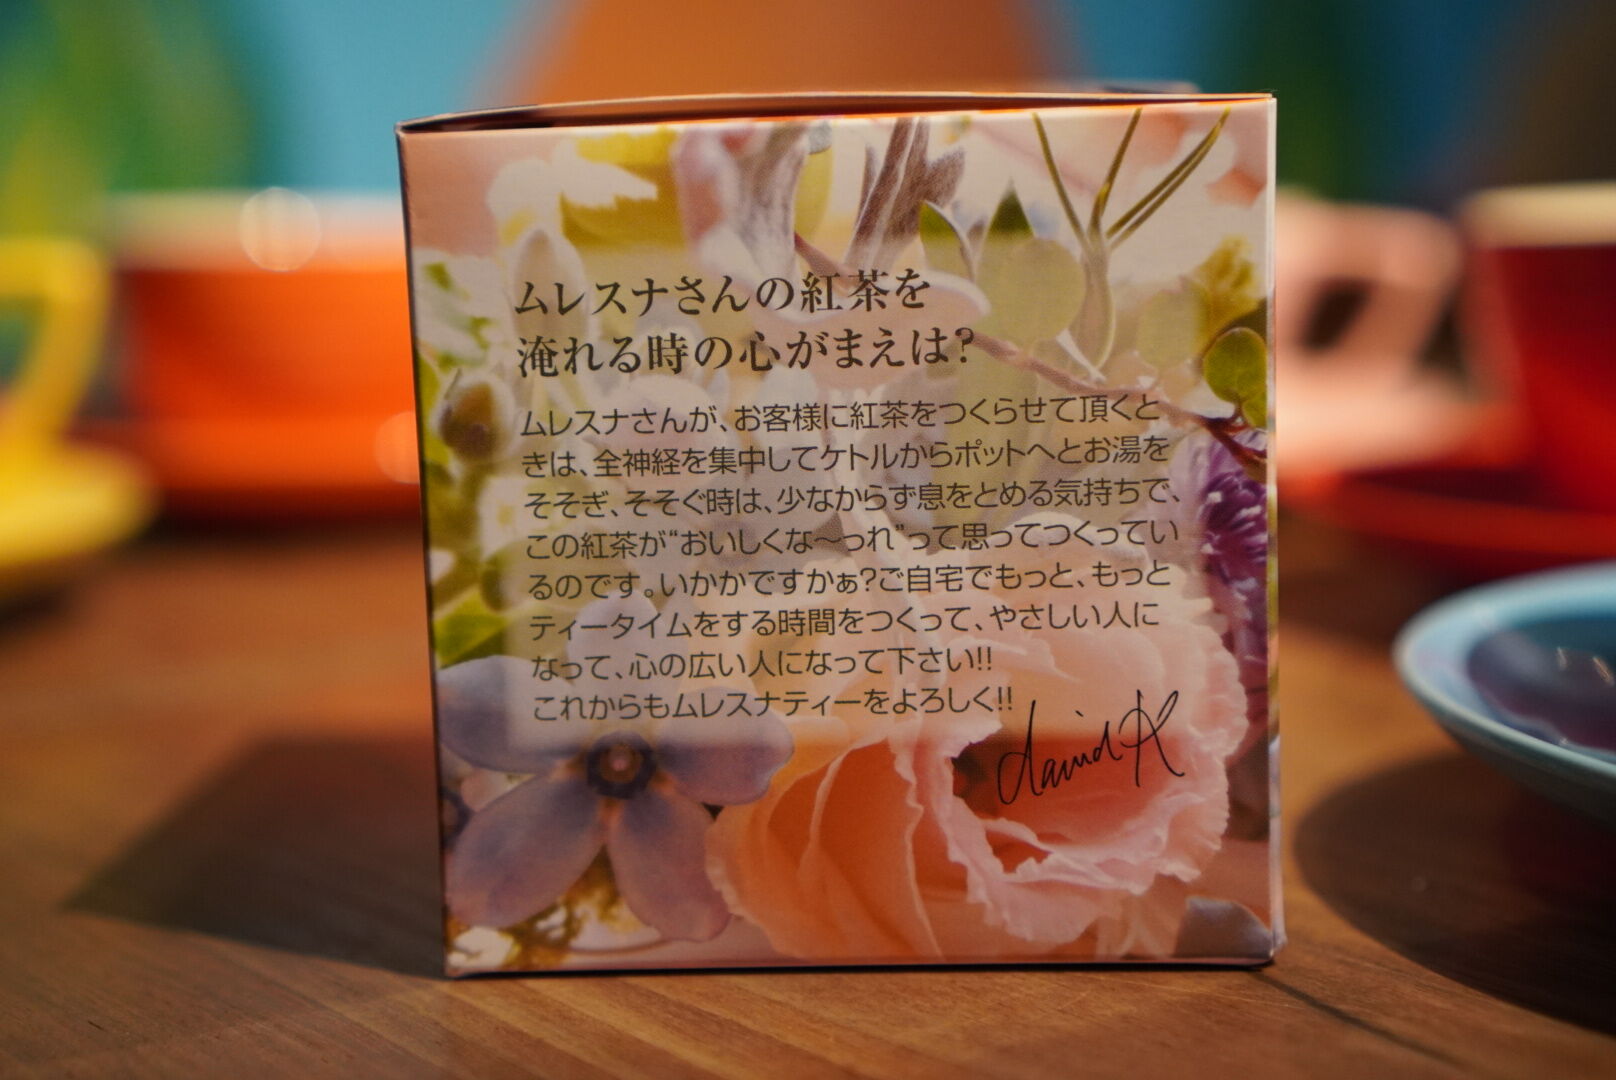 ムレスナさんの紅茶を
淹れる時の心がまえは?
ムレスナさんが、お客様に紅茶をつくらせて頂くと
きは、全神経を集中してケトルからポットへとお湯を
そそぎ、そそぐ時は、少なからず息をとめる気持ちで、
この紅茶が“おいしくな〜っれ”って思ってつくってい
るのです。いかかですかぁ?ご自宅でもっと、もっと
ティータイムをする時間をつくって、やさしい人に
なって、心の広い人になって下さい!!
これからもムレスナティーをよろしく!!